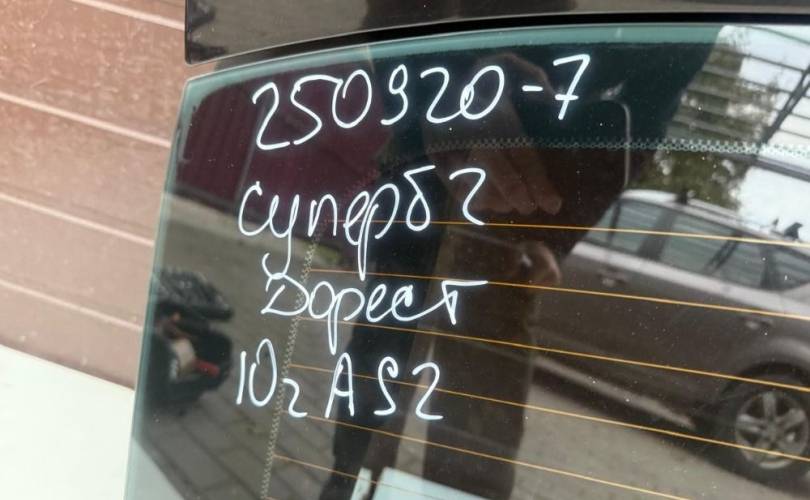 250920-7
суперб 2
Дорест
10г AS2